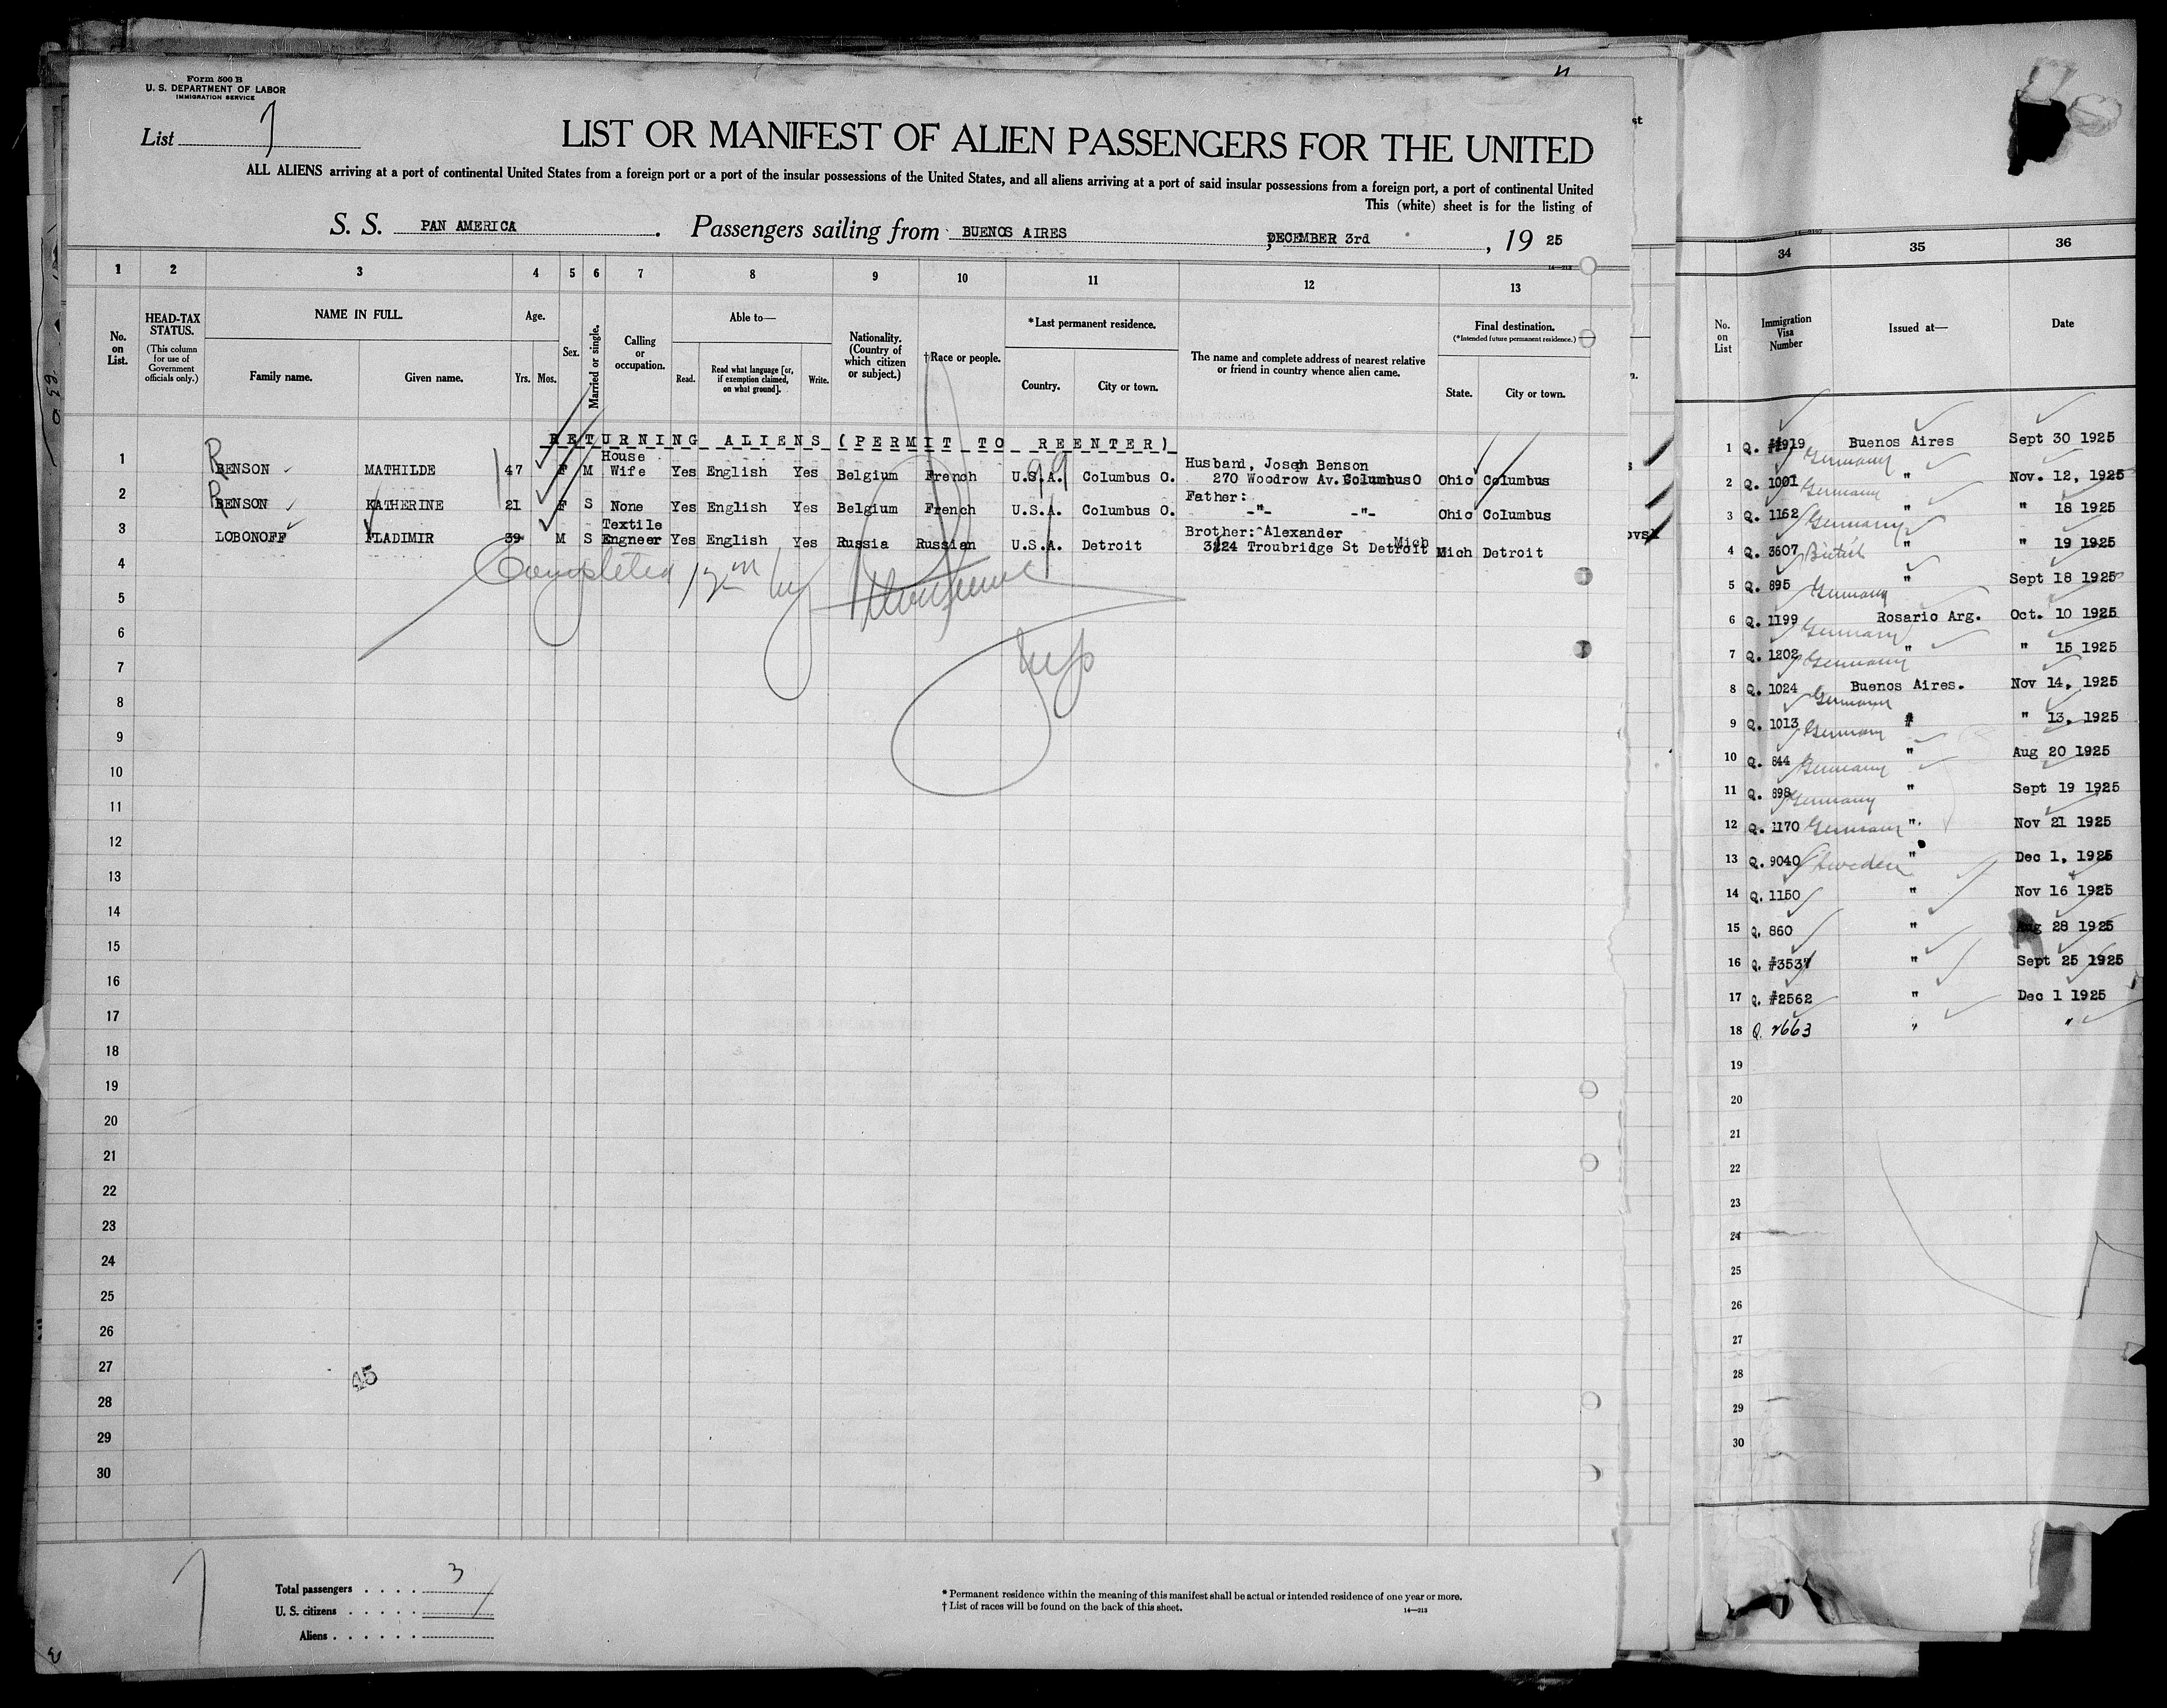 Form 500 B
U. S. DEPARTMENT OF LABOR
IMMIGRATION SERVICE
List 7
LIST OR MANIFEST OF ALIEN PASSENGERS FOR THE UNITED
ALL ALIENS arriving at a port of continental United States from a foreign port or a port of the insular possessions of the United States, and all aliens arriving at a port of said insular possessions from a foreign port, a port of continental United
This (white) sheet is for the listing of
S. S. PAN AMERICA. Passengers sailing from BUENOS AIRES, DECEMBER 3rd, 19 25
14—213
1 2 3 4 5 6 7 8 9 10 11 12 13
No. on List.
HEAD-TAX STATUS. (This column for use of Government officials only.)
NAME IN FULL.
Family name. Given name.
Age. Yrs. Mos.
Sex.
Married or single.
Calling or occupation.
Able to—
Read. Read what language [or, if exemption claimed, on what ground]. Write.
Nationality. (Country of which citizen or subject.)
†Race or people.
*Last permanent residence.
Country. City or town.
The name and complete address of nearest relative or friend in country whence alien came.
Final destination. (*Intended future permanent residence.)
State. City or town.
RETURNING ALIENS (PERMIT TO REENTER)
1 BENSON MATHILDE 47 F M House Wife Yes English Yes Belgium French U.S.A. Columbus O. Husband, Joseph Benson 270 Woodrow Av. Columbus O Ohio Columbus
2 BENSON KATHERINE 21 F S None Yes English Yes Belgium French U.S.A. Columbus O. Father: -"- -"- Ohio Columbus
3 LOBONOFF VLADIMIR 39 M S Textile Engneer Yes English Yes Russia Russian U.S.A. Detroit Brother: Alexander 3824 Troubridge St Detroit Mich Mich Detroit
Completed
by
4
5
6
7
8
9
10
11
12
13
14
15
16
17
18
19
20
21
22
23
24
25
26
27
28
29
30
45
Total passengers . . . . 3
U. S. citizens . . . . .
Aliens . . . . . .
* Permanent residence within the meaning of this manifest shall be actual or intended residence of one year or more.
† List of races will be found on the back of this sheet.
14—213
34 35 36
No. on List
Immigration Visa Number
Issued at—
Date
1 Q. #1919 Germany Buenos Aires Sept 30 1925
2 Q. 1001 Germany " Nov. 12, 1925
3 Q. 1162 Germany " " 18 1925
4 Q. 3607 British " " 19 1925
5 Q. 895 Germany " Sept 18 1925
6 Q. 1199 Germany Rosario Arg. Oct. 10 1925
7 Q. 1202 Germany " " 15 1925
8 Q. 1024 Germany Buenos Aires. Nov 14, 1925
9 Q. 1013 Germany " " 13, 1925
10 Q. 844 Germany " Aug 20 1925
11 Q. 898 Germany " Sept 19 1925
12 Q. 1170 Germany " Nov 21 1925
13 Q. 9040 Sweden " Dec 1, 1925
14 Q. 1150 " Nov 16 1925
15 Q. 860 " Aug 28 1925
16 Q. #3537 " Sept 25 1925
17 Q. #2562 " Dec 1 1925
18 Q. 2663 " "
19
20
21
22
23
24
25
26
27
28
29
30